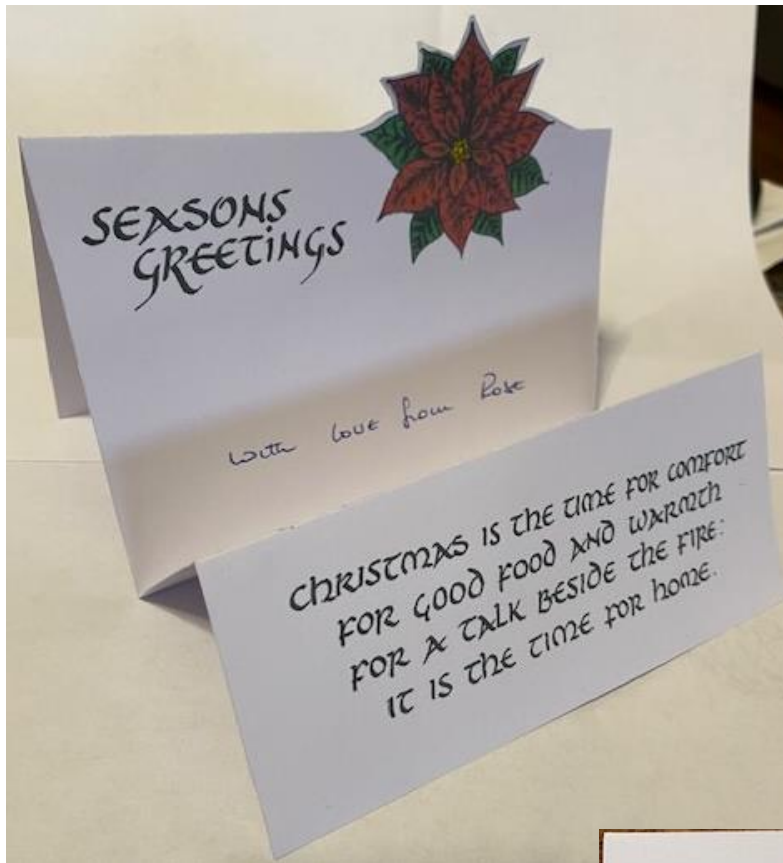 SEASONS
GREETINGS
with love from Rose
CHRISTMAS IS THE TIME FOR COMFORT
FOR GOOD FOOD AND WARMTH
FOR A TALK BESIDE THE FIRE:
IT IS THE TIME FOR HOME.